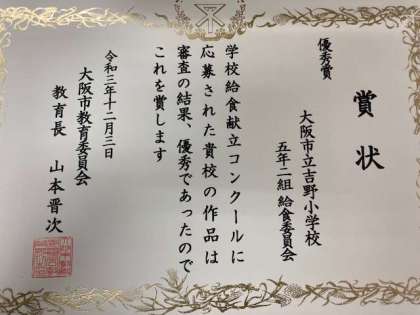 賞状
優秀賞
大阪市立吉野小学校
五年二組 給食委員会
学校給食献立コンクールに
応募された貴校の作品は
審査の結果、優秀であったので
これを賞します
令和三年十二月三日
大阪市教育委員会
教育長 山本晋次